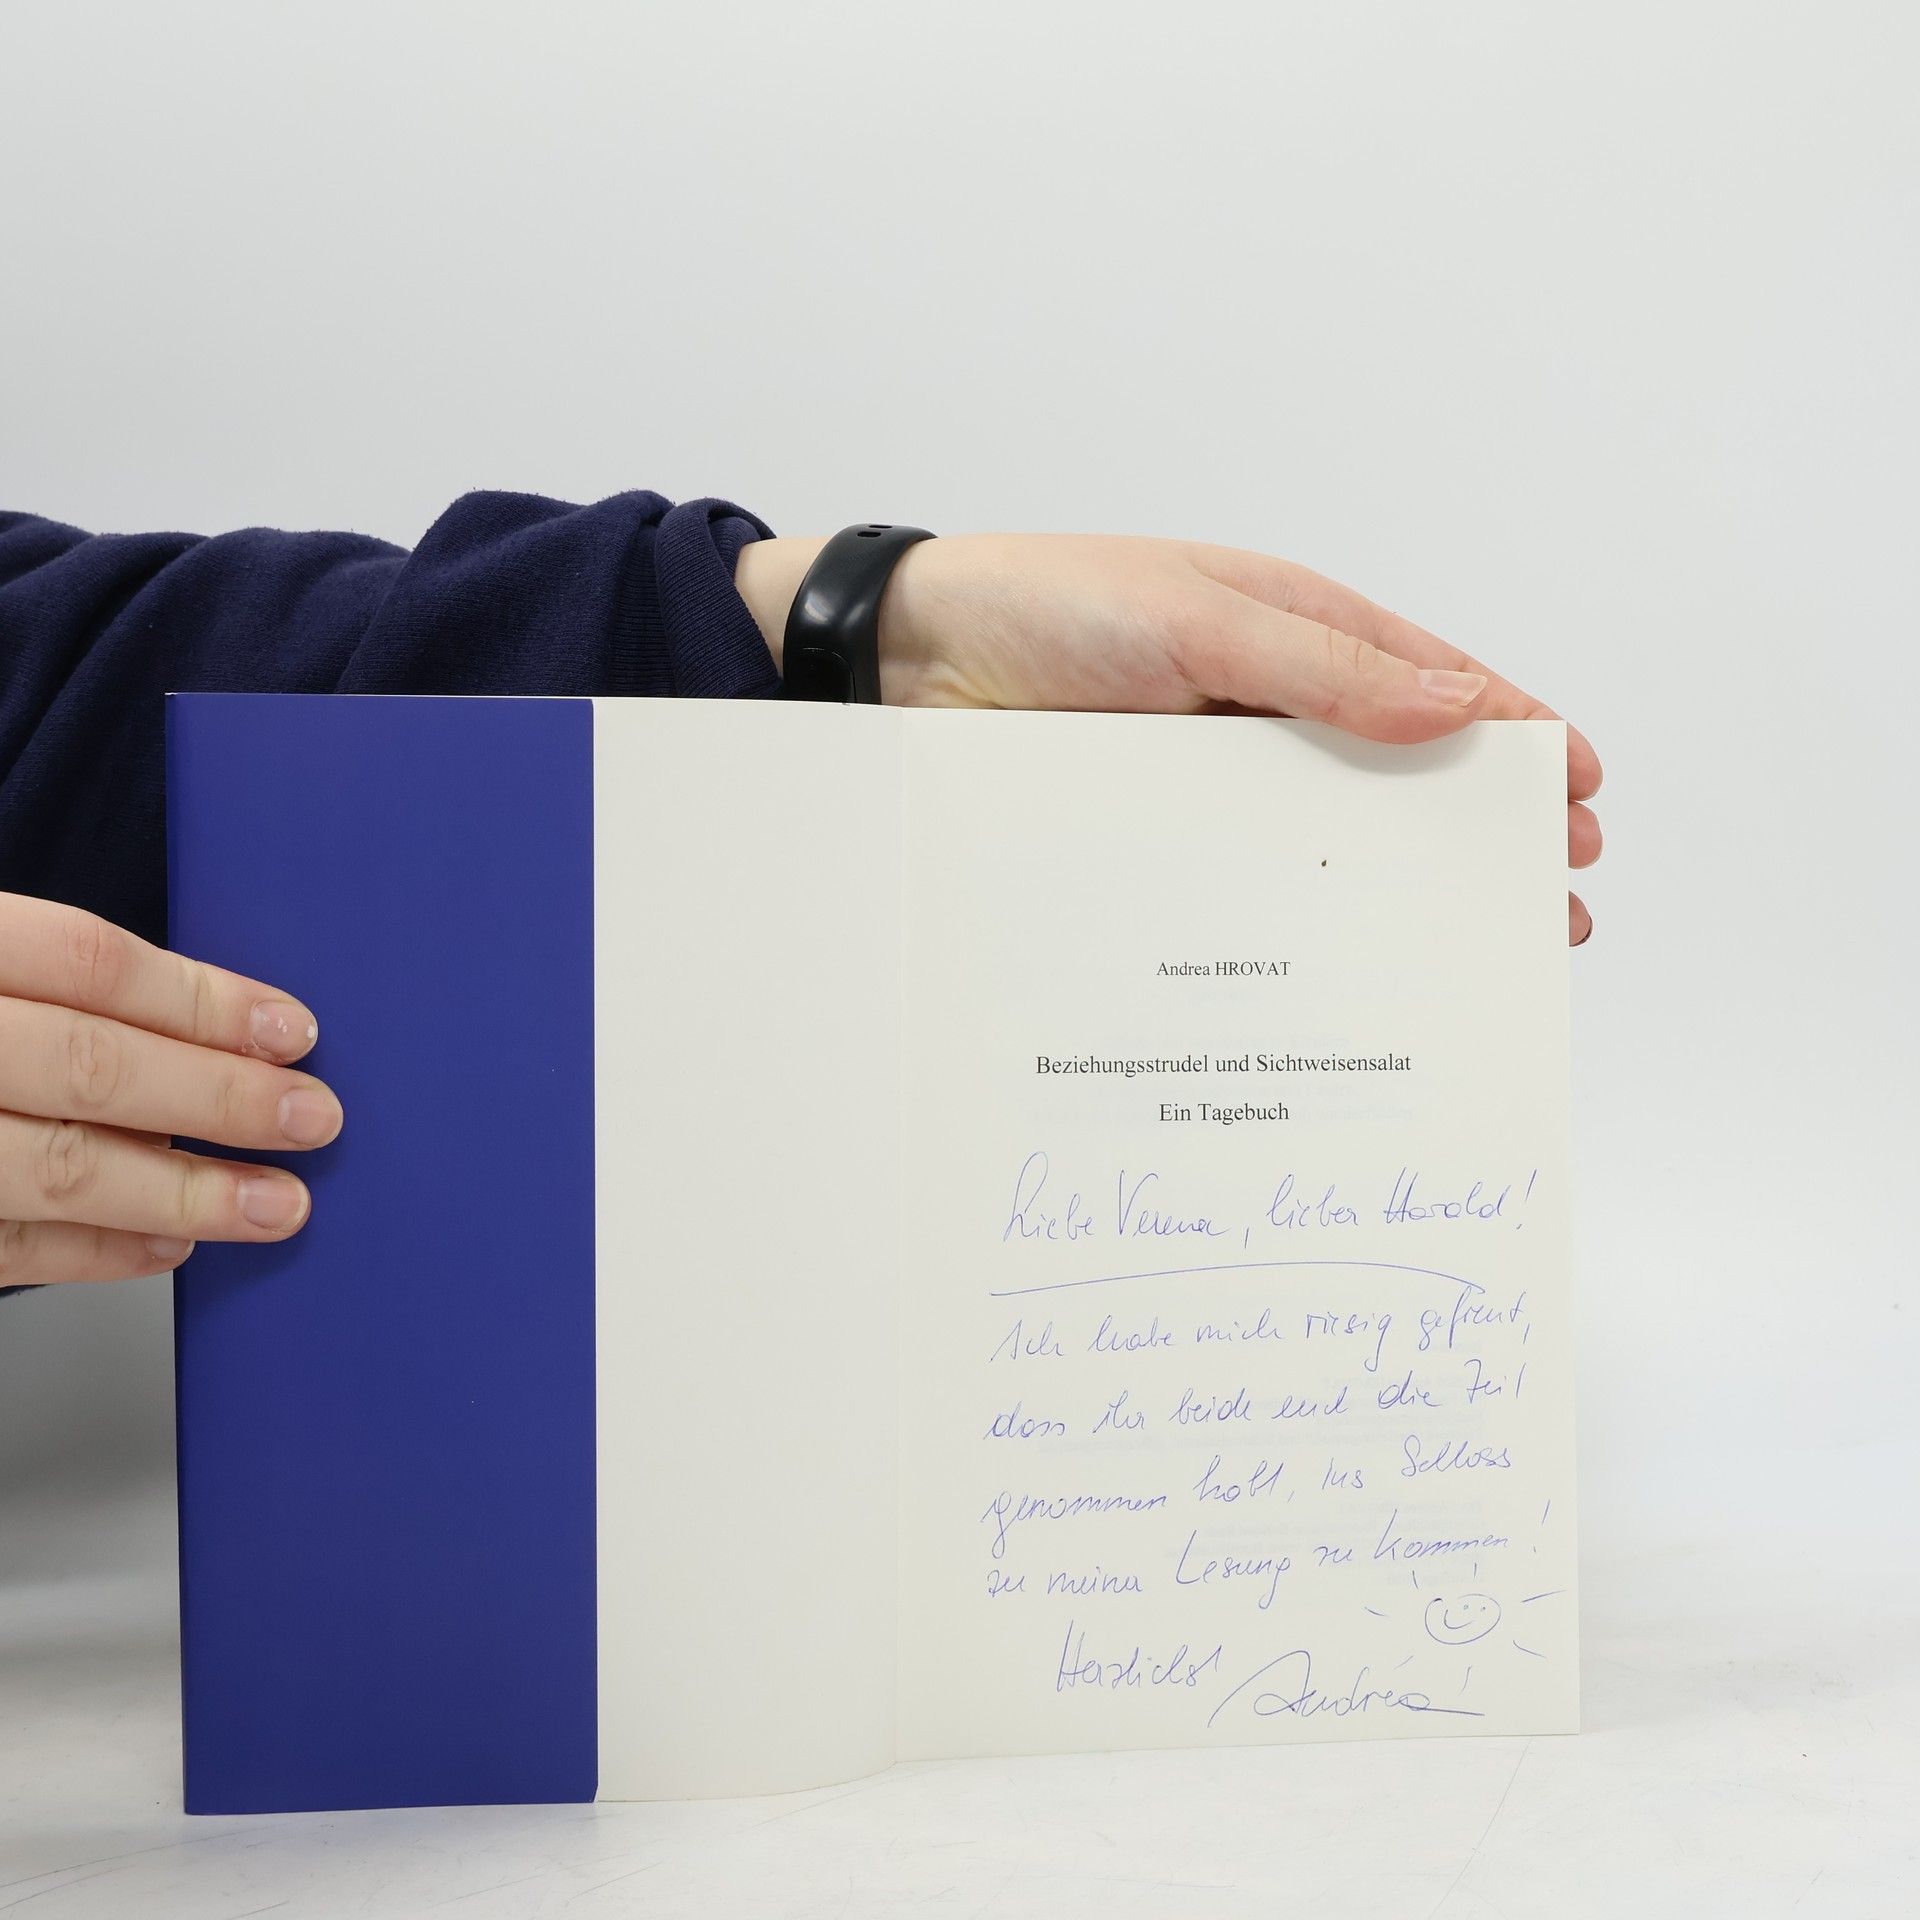 Andrea HROVAT
Beziehungsstrudel und Sichtweisensalat
Ein Tagebuch
Liebe Verena, lieber Harald!
Ich habe mich riesig gefreut,
dass ihr beide euch die Zeit
genommen habt, ins Schloss
zu meiner Lesung zu kommen!
Herzlichst Andrea